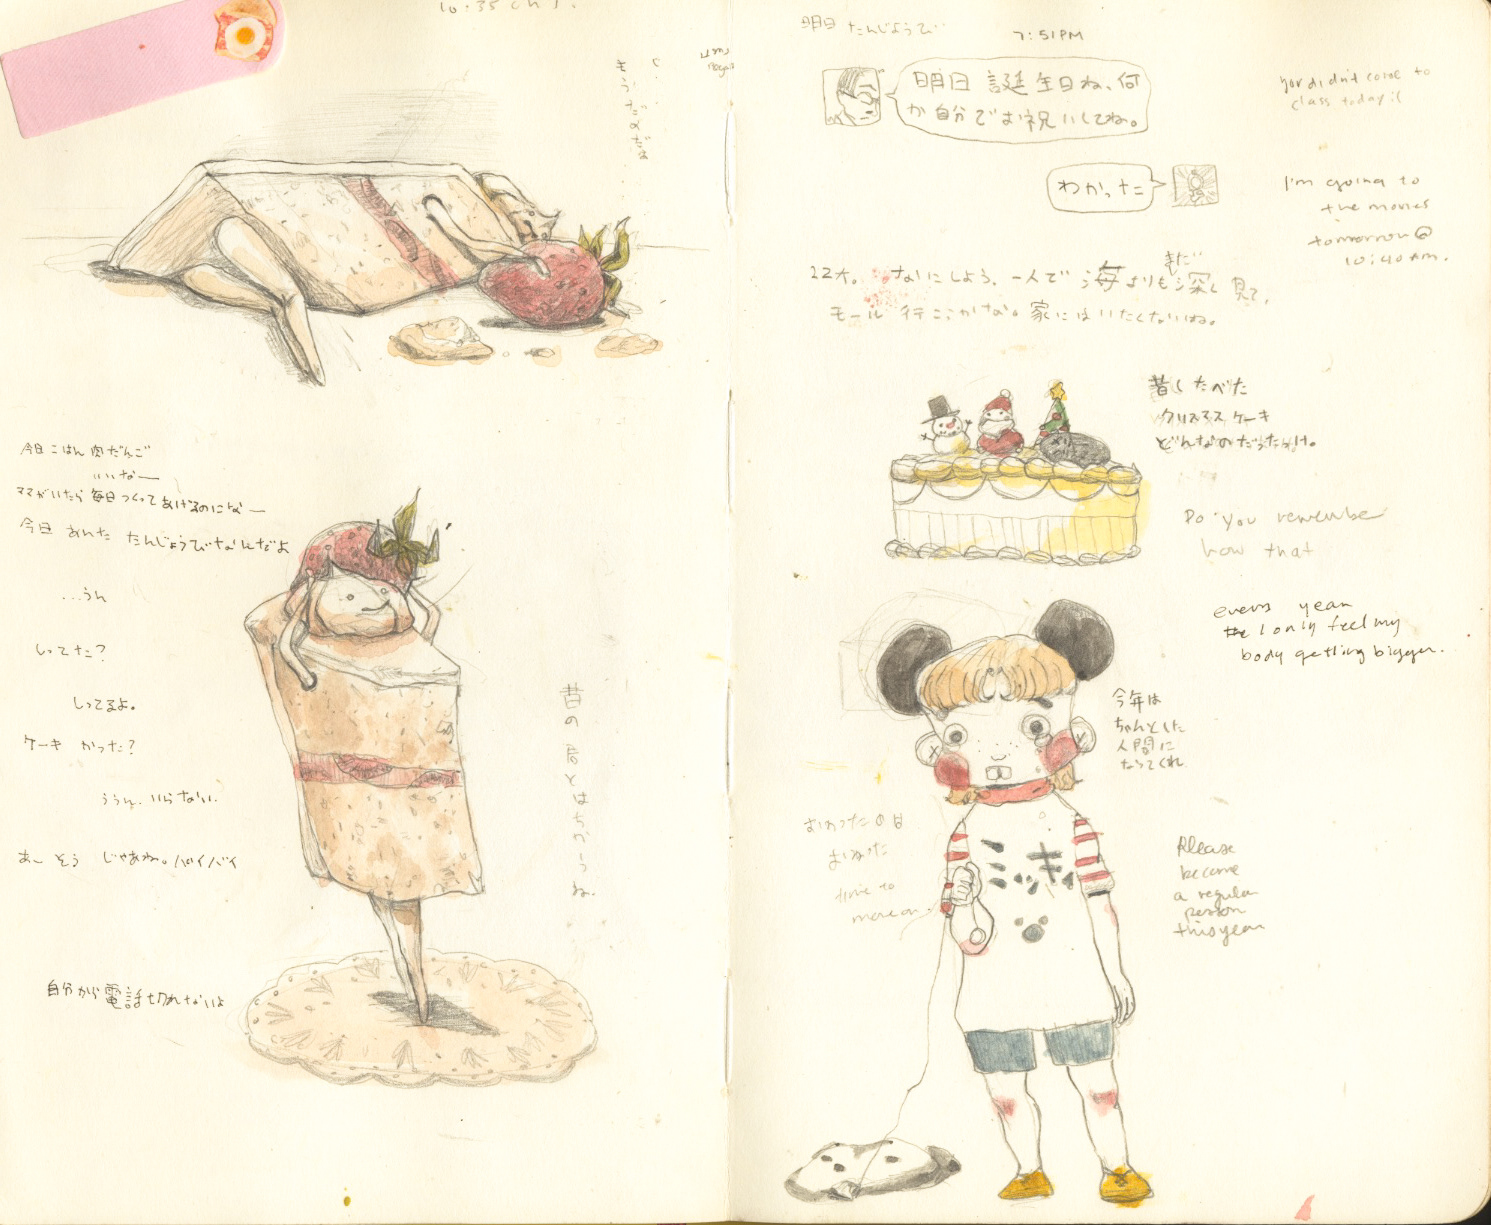 10:35
もうだめだね
今日ごはん肉だんご
いいなー
ママがいたら毎日つくってあげるのになー
今日 あんた たんじょうびなんだよ
...うん
しってた?
しってるよ。
ケーキ かった?
ううん、いらない、
あー そう じゃあね。バイバイ
自分から電話切れないよ
昔の 居とはちがうね。
明日 たんじょうび..
7:51PM
明日 誕生日ね、何
か自分でお祝いしてね。
わかった
you didn't come to
class today :(
I'm going to
the movies
tomorrow @
10:40 AM.
22才。なにしよう、一人で 海よりもまだ深く 見て、
モール 行こうかな。家にはいたくないね。
昔したべた
クリスマスケーキ
どんなのだったっけ。
メリー
クリスマス
Do you remember
how that
every year
I only feel my
body getting bigger.
今年は
ちゃんとした
人間に
なってくれ
おわったのは
おわった
time to
move on
ミッキィ
Please
become
a regular
person
this year